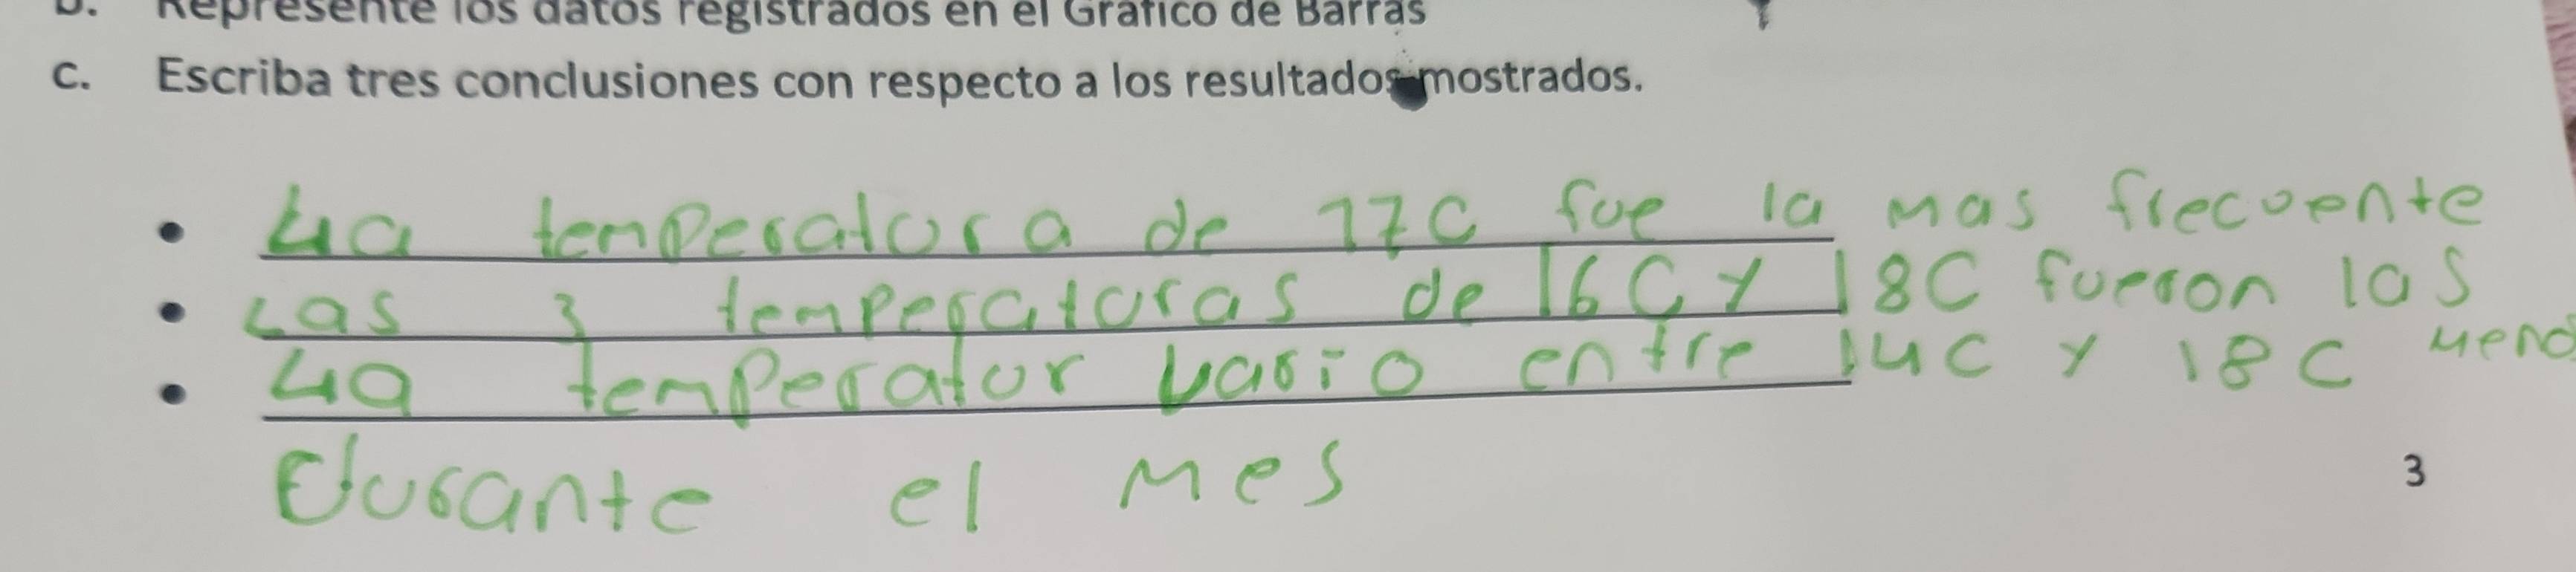 b. Represente los datos registrados en el Gráfico de Barras
c. Escriba tres conclusiones con respecto a los resultados mostrados.
• La temperatura de 17C fue la mas frecuente
• Las 3 temperaturas de 16C y 18C fueron las
• La temperatur vario entre 14C y 18C meno
durante el mes
3